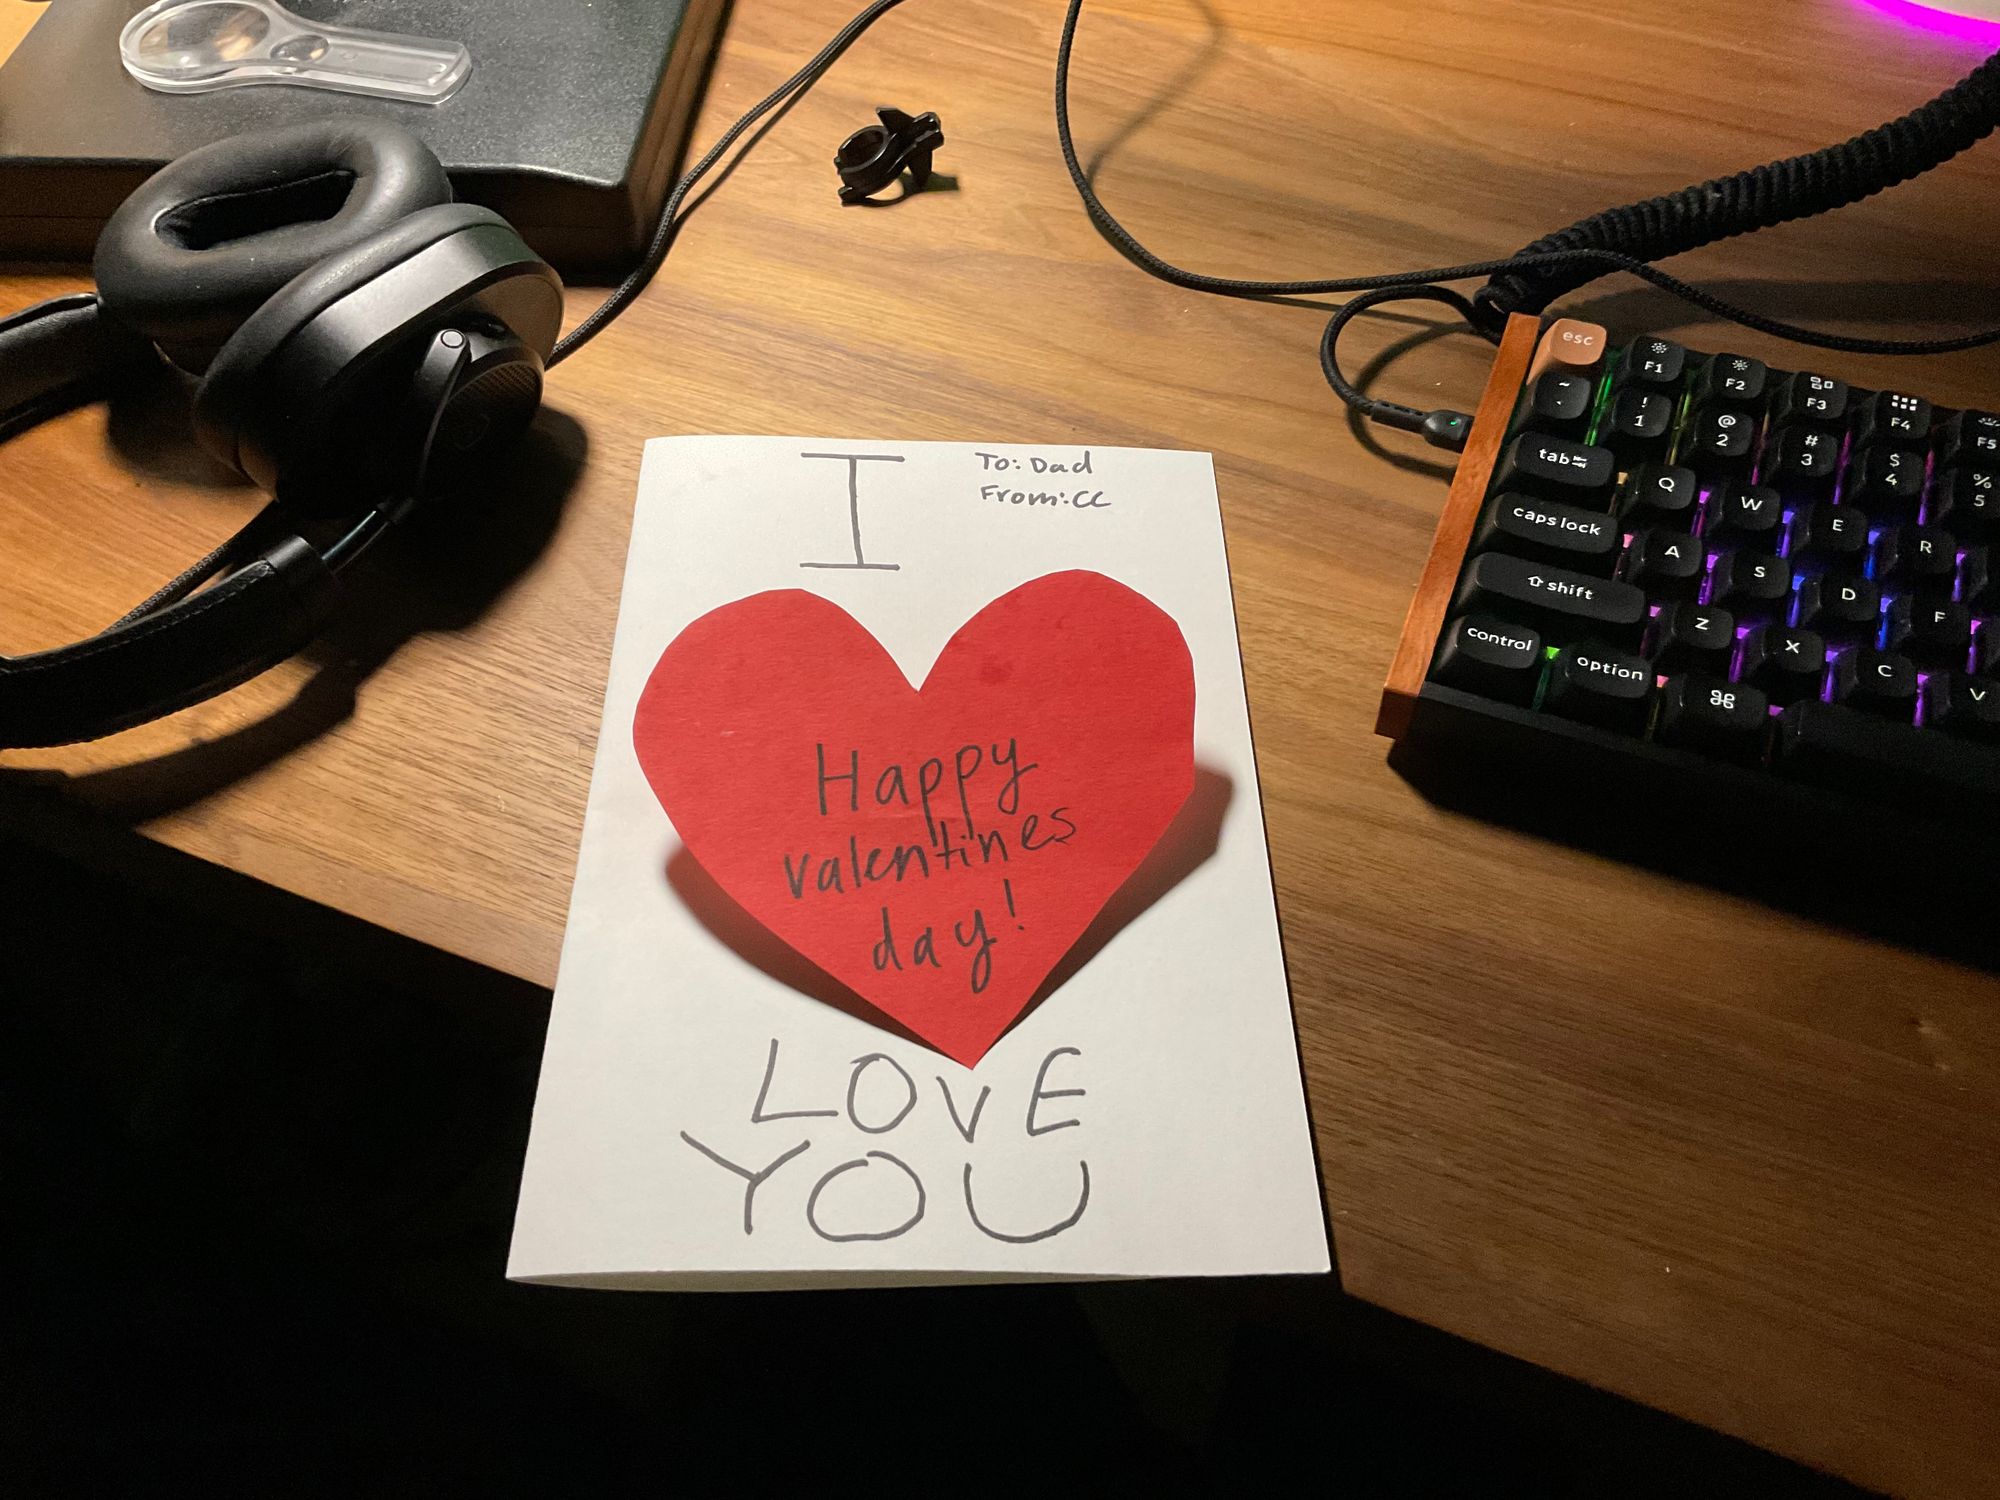 I
To: Dad
From: CC
Happy
valentines
day!
LOVE
YOU
esc
F1
F2
F3
F4
F5
~
`
!
1
@
2
#
3
$
4
%
5
tab
Q
W
E
R
caps lock
A
S
D
F
shift
Z
X
C
V
control
option
⌘